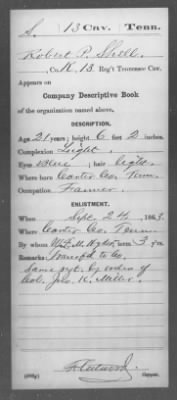 S. | 13 Cav. | Tenn.
Robert P. Shell
, Co. K, 13 Reg't Tennessee Cav.
Appears on
Company Descriptive Book
of the organization named above.
DESCRIPTION.
Age 21 years; height 6 feet 2 inches.
Complexion Light
Eyes Blue; hair Light
Where born Carter Co. Tenn.
Occupation Farmer
ENLISTMENT.
When Sept. 24, 1863.
Where Carter Co. Tenn
By whom term 3 y'rs
Remarks: Transf'd to Co.
Same regt. by order of
Col. Jno. K. Miller.
Copyist.